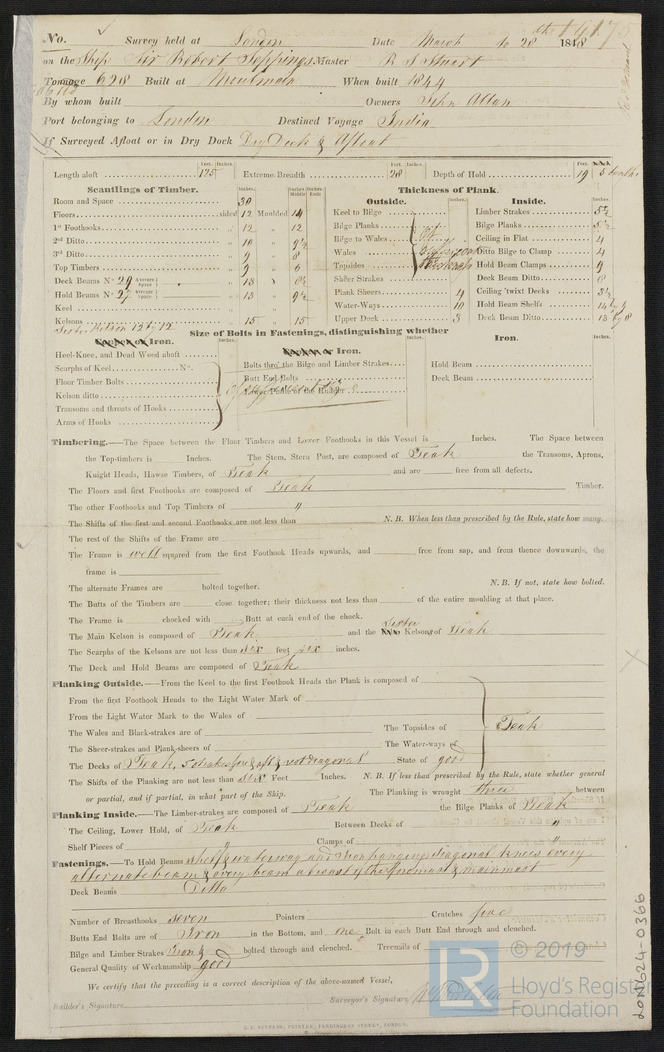 No. Survey held at London Date March 10 to 28th 1848 19175
on the Ship Sir Robert Seppings Master R S Stuart
Tonnage 628 Built at Moulmain When built 1844
By whom built Owners John Allan
Port belonging to London Destined Voyage India
If Surveyed Afloat or in Dry Dock Dry Dock & Afloat
Length aloft 125 Extreme Breadth 28 Depth of Hold 19 5 tenths
Scantlings of Timber. Thickness of Plank.
Outside. Inside.
Room and Space 30 Keel to Bilge Limber Strakes 5½
Floors sided 12 Moulded 14 Bilge Planks Bilge Planks 5½
1st Foothooks 12 " 12 Bilge to Wales Ceiling in Flat 4
2nd Ditto 10 " 9½ Wales Ditto Bilge to Clamp 4
3rd Ditto 9 " 8 Topsides Hold Beam Clamps 9
Top Timbers 9 " 6 Sheer Strakes Deck Beam Ditto 8
Deck Beams No 29 Average Space 13 Plank Sheers 4 Ceiling 'twixt Decks 3½
Hold Beams No 27 Average Space 13 " 9½ Water-Ways 10 Hold Beam Shelfs 14 by 9
Keel Upper Deck 3 Deck Beam Ditto 13 by 8
Kelsons 15 " 15
Sister Kelson 12 by 12
Size of Bolts in Fastenings, distinguishing whether
Copper or Iron. Copper or Iron. Iron.
Heel-Knee, and Dead Wood abaft Bolts thro' the Bilge and Limber Strakes Hold Beam
Scarphs of Keel No. Butt End Bolts Deck Beam
Floor Timber Bolts
Kelson ditto
Transoms and throats of Hooks
Arms of Hooks
Timbering.—The Space between the Floor Timbers and Lower Foothooks in this Vessel is Inches. The Space between
the Top-timbers is Inches. The Stem, Stern Post, are composed of Teak the Transoms, Aprons,
Knight Heads, Hawse Timbers, of Teak and are free from all defects.
The Floors and first Foothooks are composed of Teak Timber.
The other Foothooks and Top Timbers of "
The Shifts of the first and second Foothooks are not less than N. B. When less than prescribed by the Rule, state how many.
The rest of the Shifts of the Frame are
The Frame is well squared from the first Foothook Heads upwards, and free from sap, and from thence downwards, the
frame is
The alternate Frames are bolted together. N. B. If not, state how bolted.
The Butts of the Timbers are close together; their thickness not less than of the entire moulding at that place.
The Frame is chocked with Butt at each end of the chock.
The Main Kelson is composed of Teak and the Sister Kelsons of Teak
The Scarphs of the Kelsons are not less than six feet six inches.
The Deck and Hold Beams are composed of Teak
Planking Outside.—From the Keel to the first Foothook Heads the Plank is composed of
From the first Foothook Heads to the Light Water Mark of
From the Light Water Mark to the Wales of
The Wales and Black-strakes are of The Topsides of Teak
The Sheer-strakes and Plank-sheers of The Water-ways of
The Decks of Teak, 5 strakes fore & aft & rest diagonal State of good
The Shifts of the Planking are not less than six Feet Inches. N. B. If less than prescribed by the Rule, state whether general
or partial, and if partial, in what part of the Ship. The Planking is wrought three between
Planking Inside.—The Limber-strakes are composed of Teak the Bilge Planks of Teak
The Ceiling, Lower Hold, of Teak Between Decks of "
Shelf Pieces of " Clamps of "
Fastenings.—To Hold Beams shelf & waterway and Iron hanging diagonal knees every
alternate beam & every beam abreast of the foremast & mainmast
Deck Beams Ditto
Number of Breasthooks seven Pointers Crutches four
Butts End Bolts are of Iron in the Bottom, and one Bolt in each Butt End through and clenched.
Bilge and Limber Strakes Iron & bolted through and clenched. Treenails of
General Quality of Workmanship good
We certify that the preceding is a correct description of the above-named Vessel,
Builder's Signature Surveyor's Signature
© 2019
LR Lloyd's Register
Foundation
LON624-0366